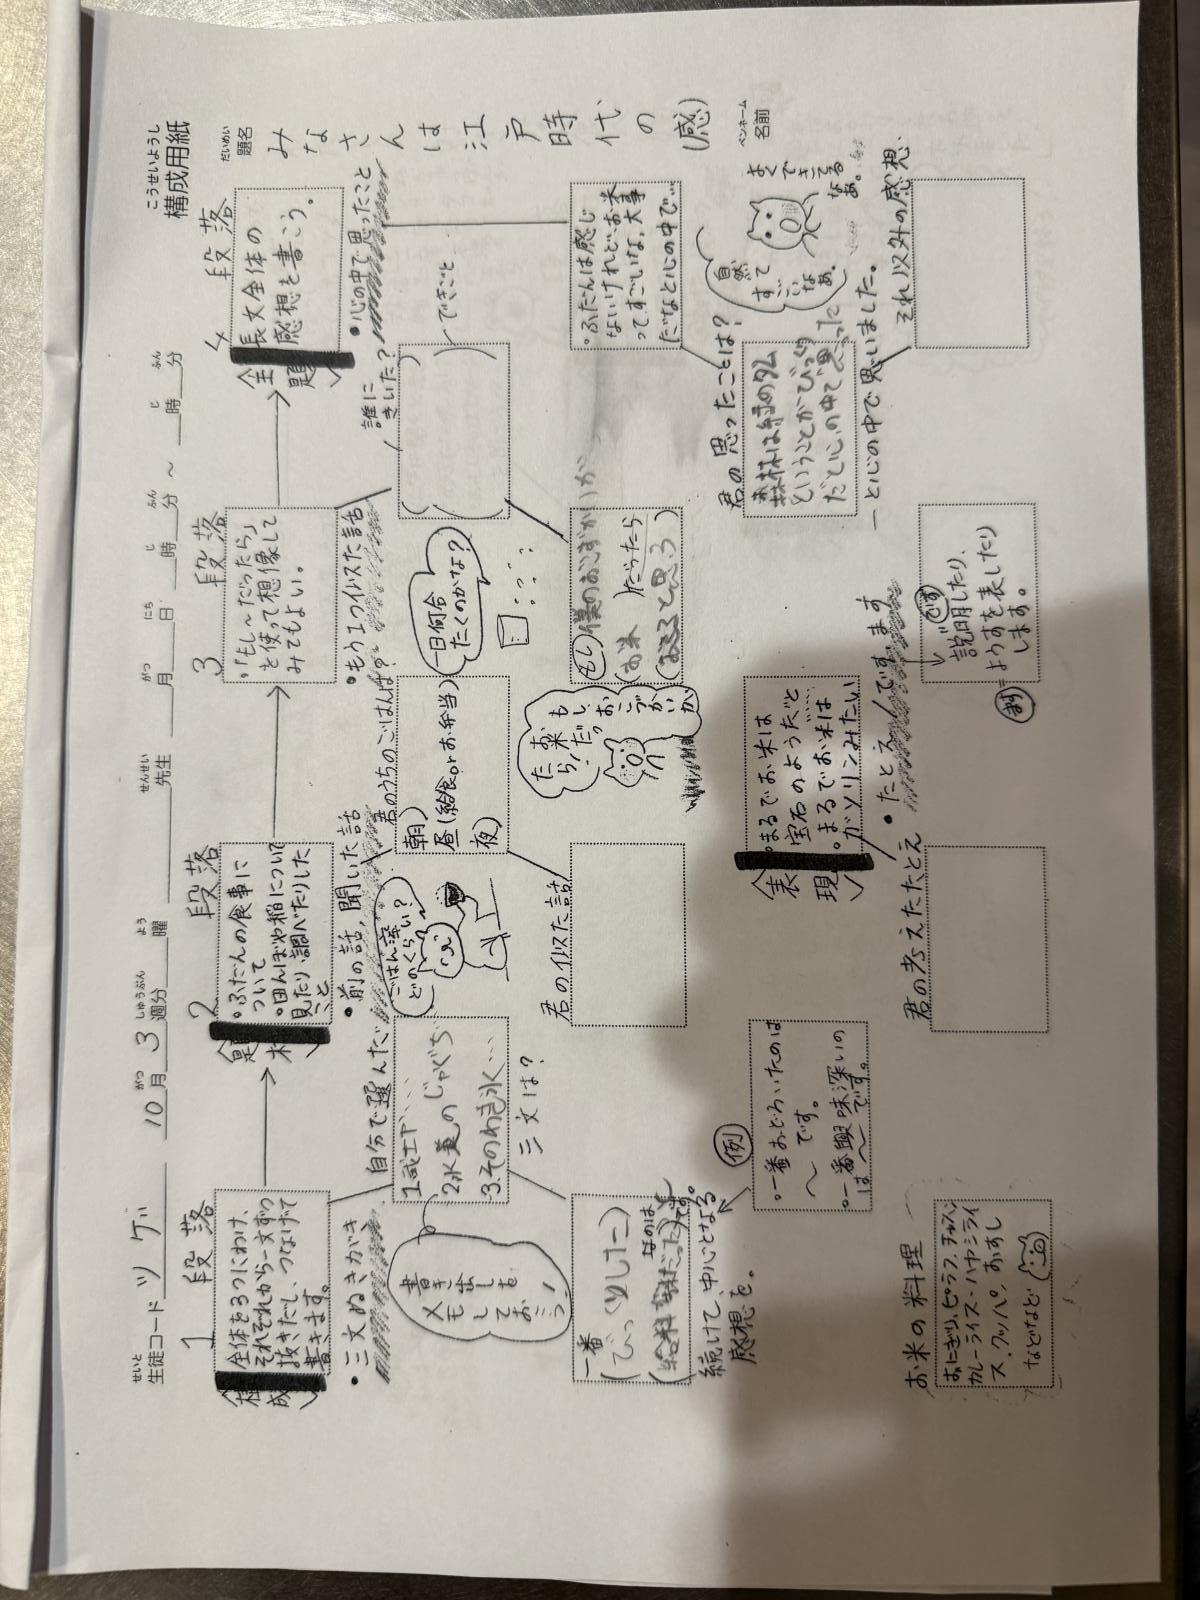 こうせいようし
構成用紙
せいと
生徒コード ツゲ
がつ しゅうぶん よう
10月3週分 曜
せんせい
先生
がつ にち じ ふん じ ふん
月 日 時 分 ～ 時 分
だいめい
題名 みなさんは江戸時代の(感)
ペンネーム
名前
1 段落
構成
全体を3つにわけ、
それぞれから一文ずつ
抜きだし、つなげて
書きます。
→
2 段落
題材
・ふだんの食事に
ついて
・田んぼや稲について
見たり調べたりした
こと
→
3 段落
・「もし〜だったら」
を使って想像して
みてもよい。
→
4 段落
主題
長文全体の
感想を書こう。
・三文ぬきがき
自分で選んだ
三文は?
1武士や‥‥
2水道のじゃぐち‥
3.そのわき水‥‥
書き出しを
メモ
してお
こう!
・前の話,聞いた話
君のうちのごはんは?
朝)
昼(給食orお弁当)
夜)
ごはん深い?
どのくらい?
・もう1つ似た話
一日何合
たくのかな?
誰に
きいた?
できごと
・心の中で思ったこと
・ふだんは感じ
ないけれど、お米
ってすごいな,大事
だなと心の中で…
一番
(びっくりした)
なのは
です。
続けて、中心となる
感想を。
君の似た話
もし 僕のおこずかいが
(お米 )だったら
( と思う)
もし、おこづかいが
お米だっ
たら!
例
・一番おどろいたのは
〜 です。
・一番興味深いの
は〜です。
表現
・まるでお米は
宝石のようだと
・まるでお米は
ガソリンみたい
君の思ったことは?
森林は緑のダム
ということがびっくり
だと心の中で思った
―と心の中で思いました。
自然って
すごい
なぁ。
よくできてる
なぁ。
お米の料理
おにぎり,ピラフ,チャーハン
カレーライス・ハヤシライ
ス,クッパ,おすし
などなど
君の考えたたとえ
・たとえ/です,ます
です
説明したり、
ます=ようすを表したり
します。
それ以外の感想